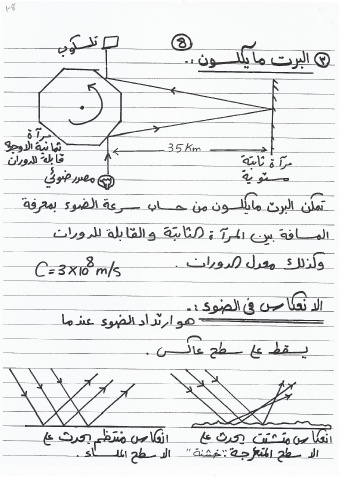 ٨
③ البرت مايكلسون :.
تلسكوب
35 Km
مرآة
ثمانية الاوجه
قابلة للدوران
مرآة ثابتة
مستوية
مصدر ضوئي
تمكن البرت مايكلسون من حساب سرعة الضوء بمعرفة
المسافة بين المرآة الثابتة والقابلة للدوران
وكذلك معدل الدوران .
C = 3×10⁸ m/s
الانعكاس في الضوء :.
هو ارتداد الضوء عندما
يسقط على سطح عاكس .
انعكاس متشتت يحدث على
الاسطح المتعرجة "خشنة"
انعكاس منتظم يحدث على
الاسطح الملساء .